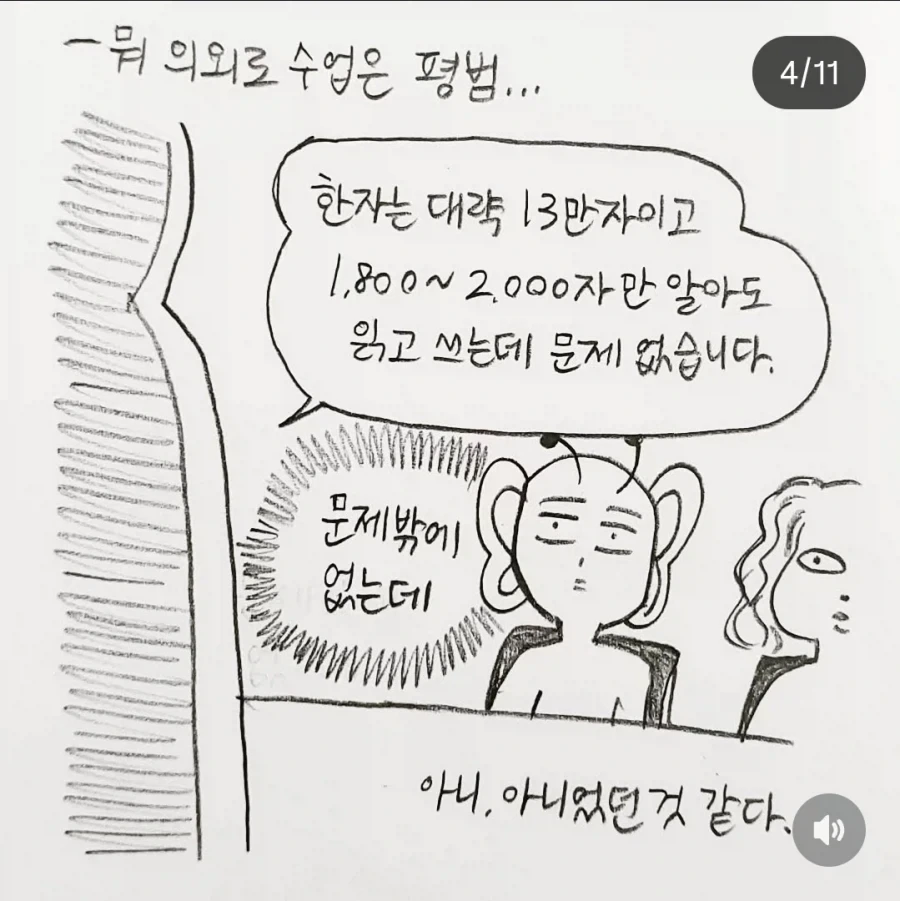 ㅡ뭐 의외로 수업은 평범...
4/11
한자는 대략 13만자이고
1,800~2,000자만 알아도
읽고 쓰는데 문제 없습니다.
문제밖에
없는데
아니, 아니었던 것 같다.